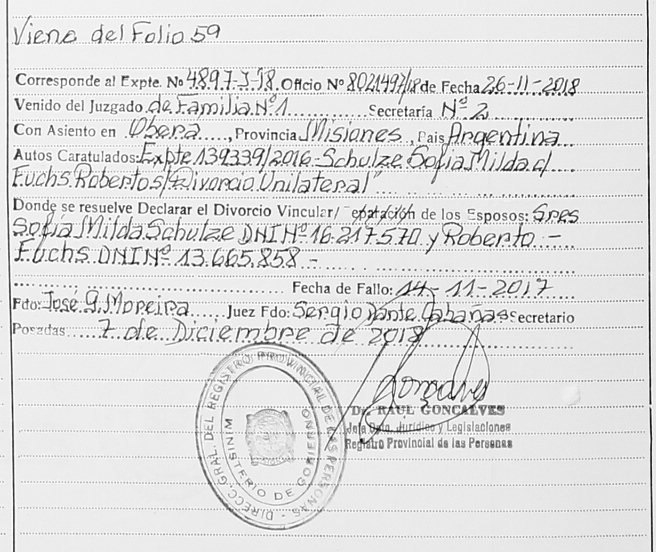 Viene del Folio 59
Corresponde al Expte. Nº 4897-J-18. Oficio Nº 8021497/18 de Fecha 26-11-2018
Venido del Juzgado de Familia Nº 1 Secretaría Nº 2
Con Asiento en Oberá, Provincia Misiones, Pais Argentina
Autos Caratulados: Expte 139339/2016-Schulze Sofia Milda c/
Fuchs Roberto s/ Divorcio Unilateral"
Donde se resuelve Declarar el Divorcio Vincular/ eparación de los Esposos: Sres
Sofia Milda Schulze DNI Nº 16.217.570 y Roberto -
Fuchs DNI Nº 13.665.858 -
Fecha de Fallo: 14-11-2017
Fdo: José G. Moreira Juez Fdo: Sergio Dante Cabañas Secretario
Posadas 7 de Diciembre de 2018
Goncalves
Dr. RAUL GONCALVES
Jefe Dpto. Jurídico y Legislaciones
Registro Provincial de las Personas
DIRECC. GRAL. DEL REGISTRO PROVINCIAL DE LAS PERSONAS
MINISTERIO DE GOBIERNO